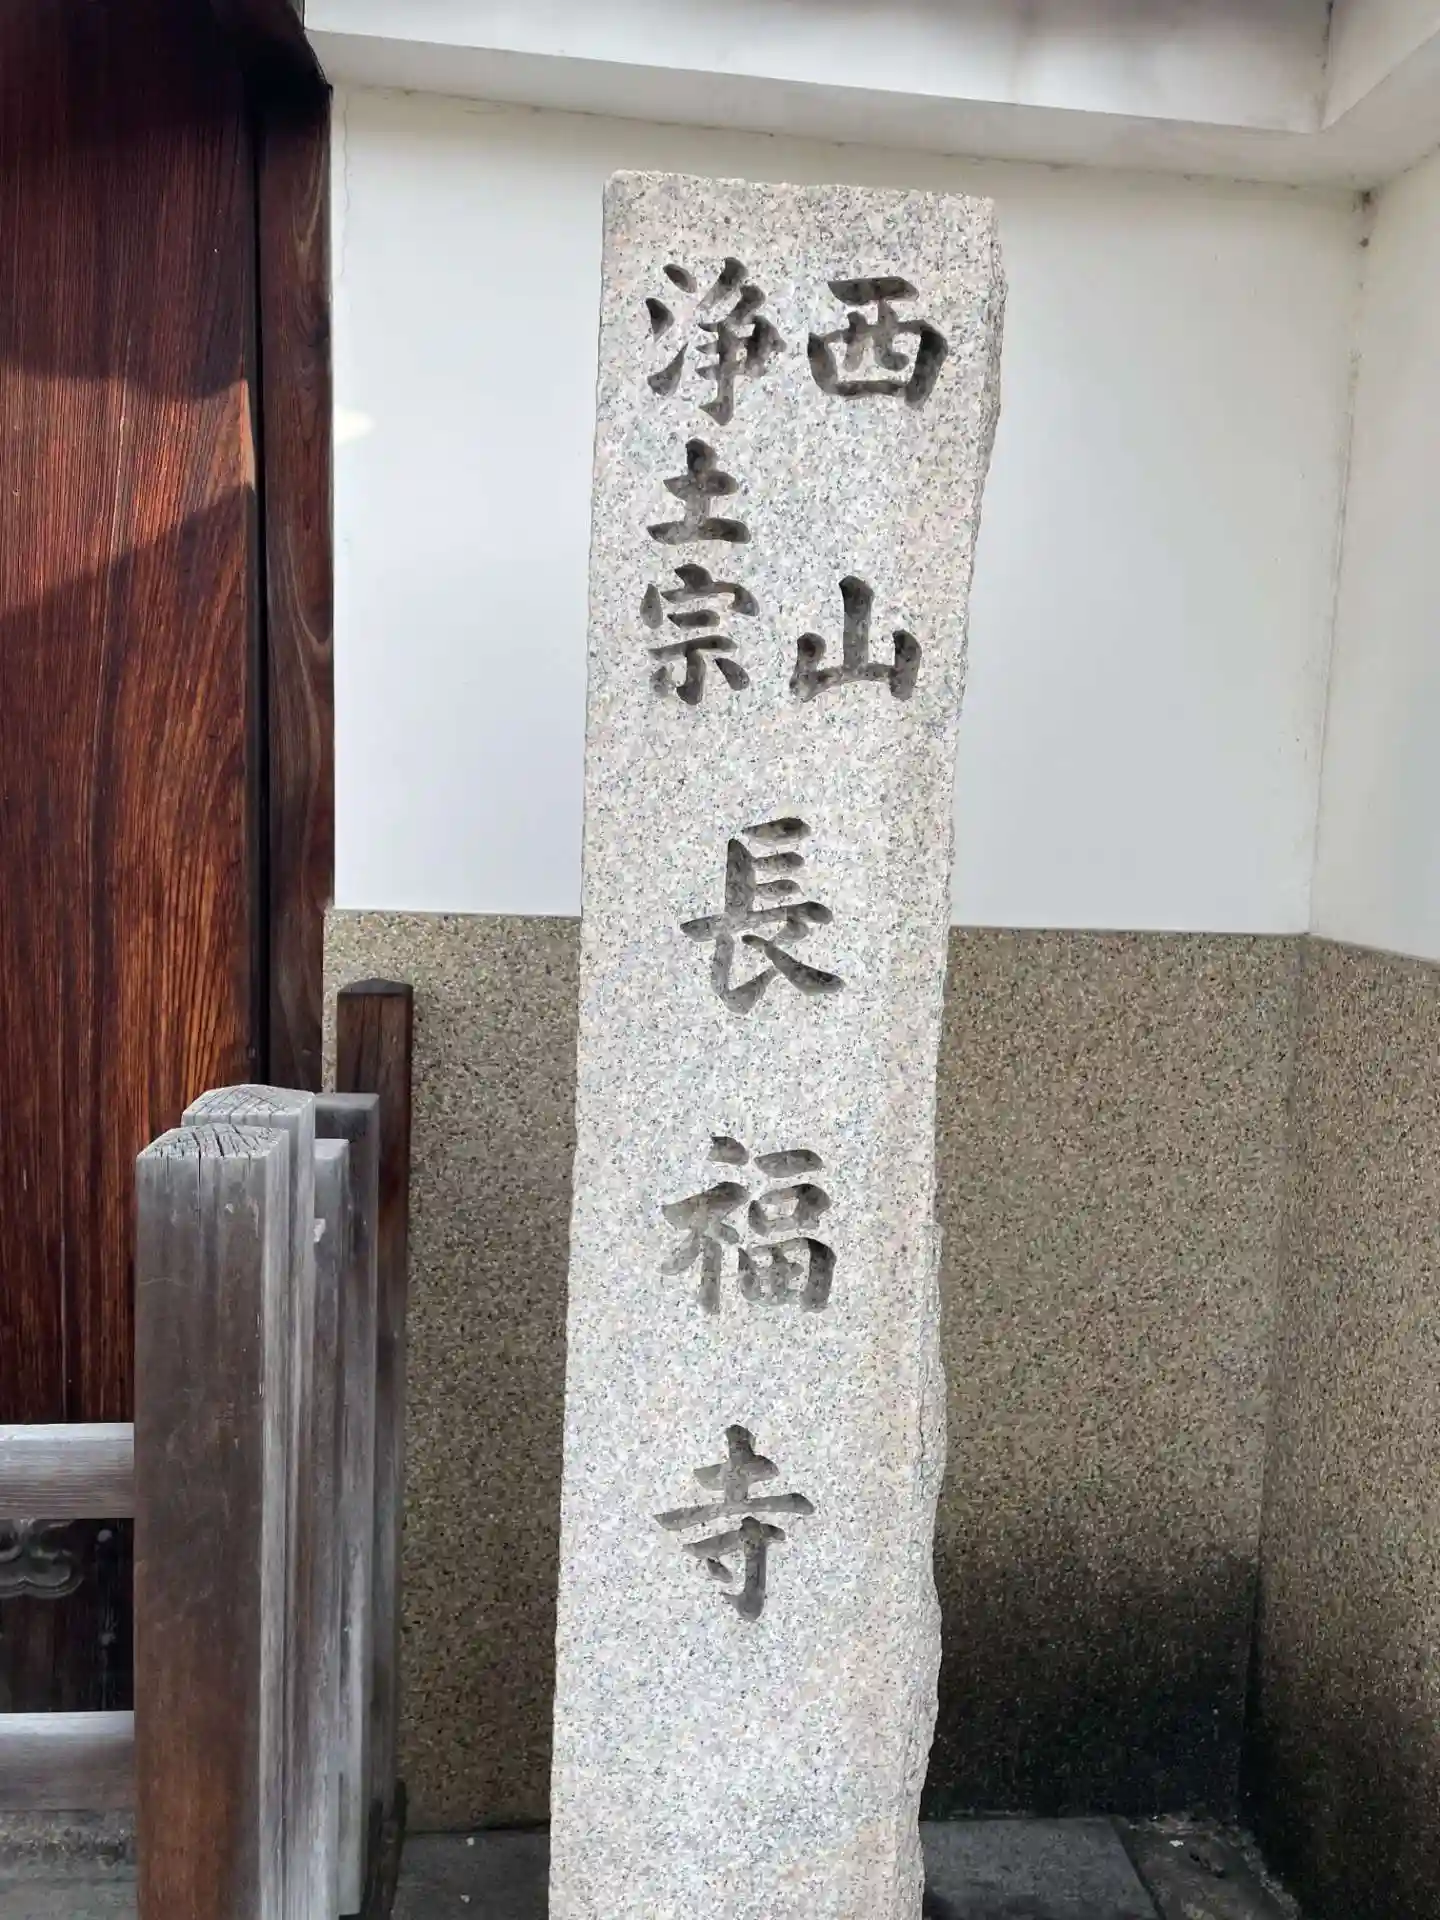 西山
浄土宗
長福寺